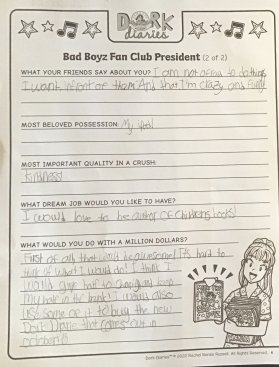 DORK
diaries
Bad Boyz Fan Club President (2 of 2)
WHAT YOUR FRIENDS SAY ABOUT YOU? I am not afraid to do things
I want infront of them And that I'm crazy and funny
MOST BELOVED POSSESSION: My
MOST IMPORTANT QUALITY IN A CRUSH:
Kindness!
WHAT DREAM JOB WOULD YOU LIKE TO HAVE?
I would love to be author of Childrens books!
WHAT WOULD YOU DO WITH A MILLION DOLLARS?
First of all that would be awesome! It's hard to
think of what I would do! I think I
would give half to charity and keep
My half in the bank! I would also
use some of it to buy the new
Dork Diarie that comes out in
october!!!
Dork Diaries™ © 2020 Rachel Renée Russell. All Rights Reserved.